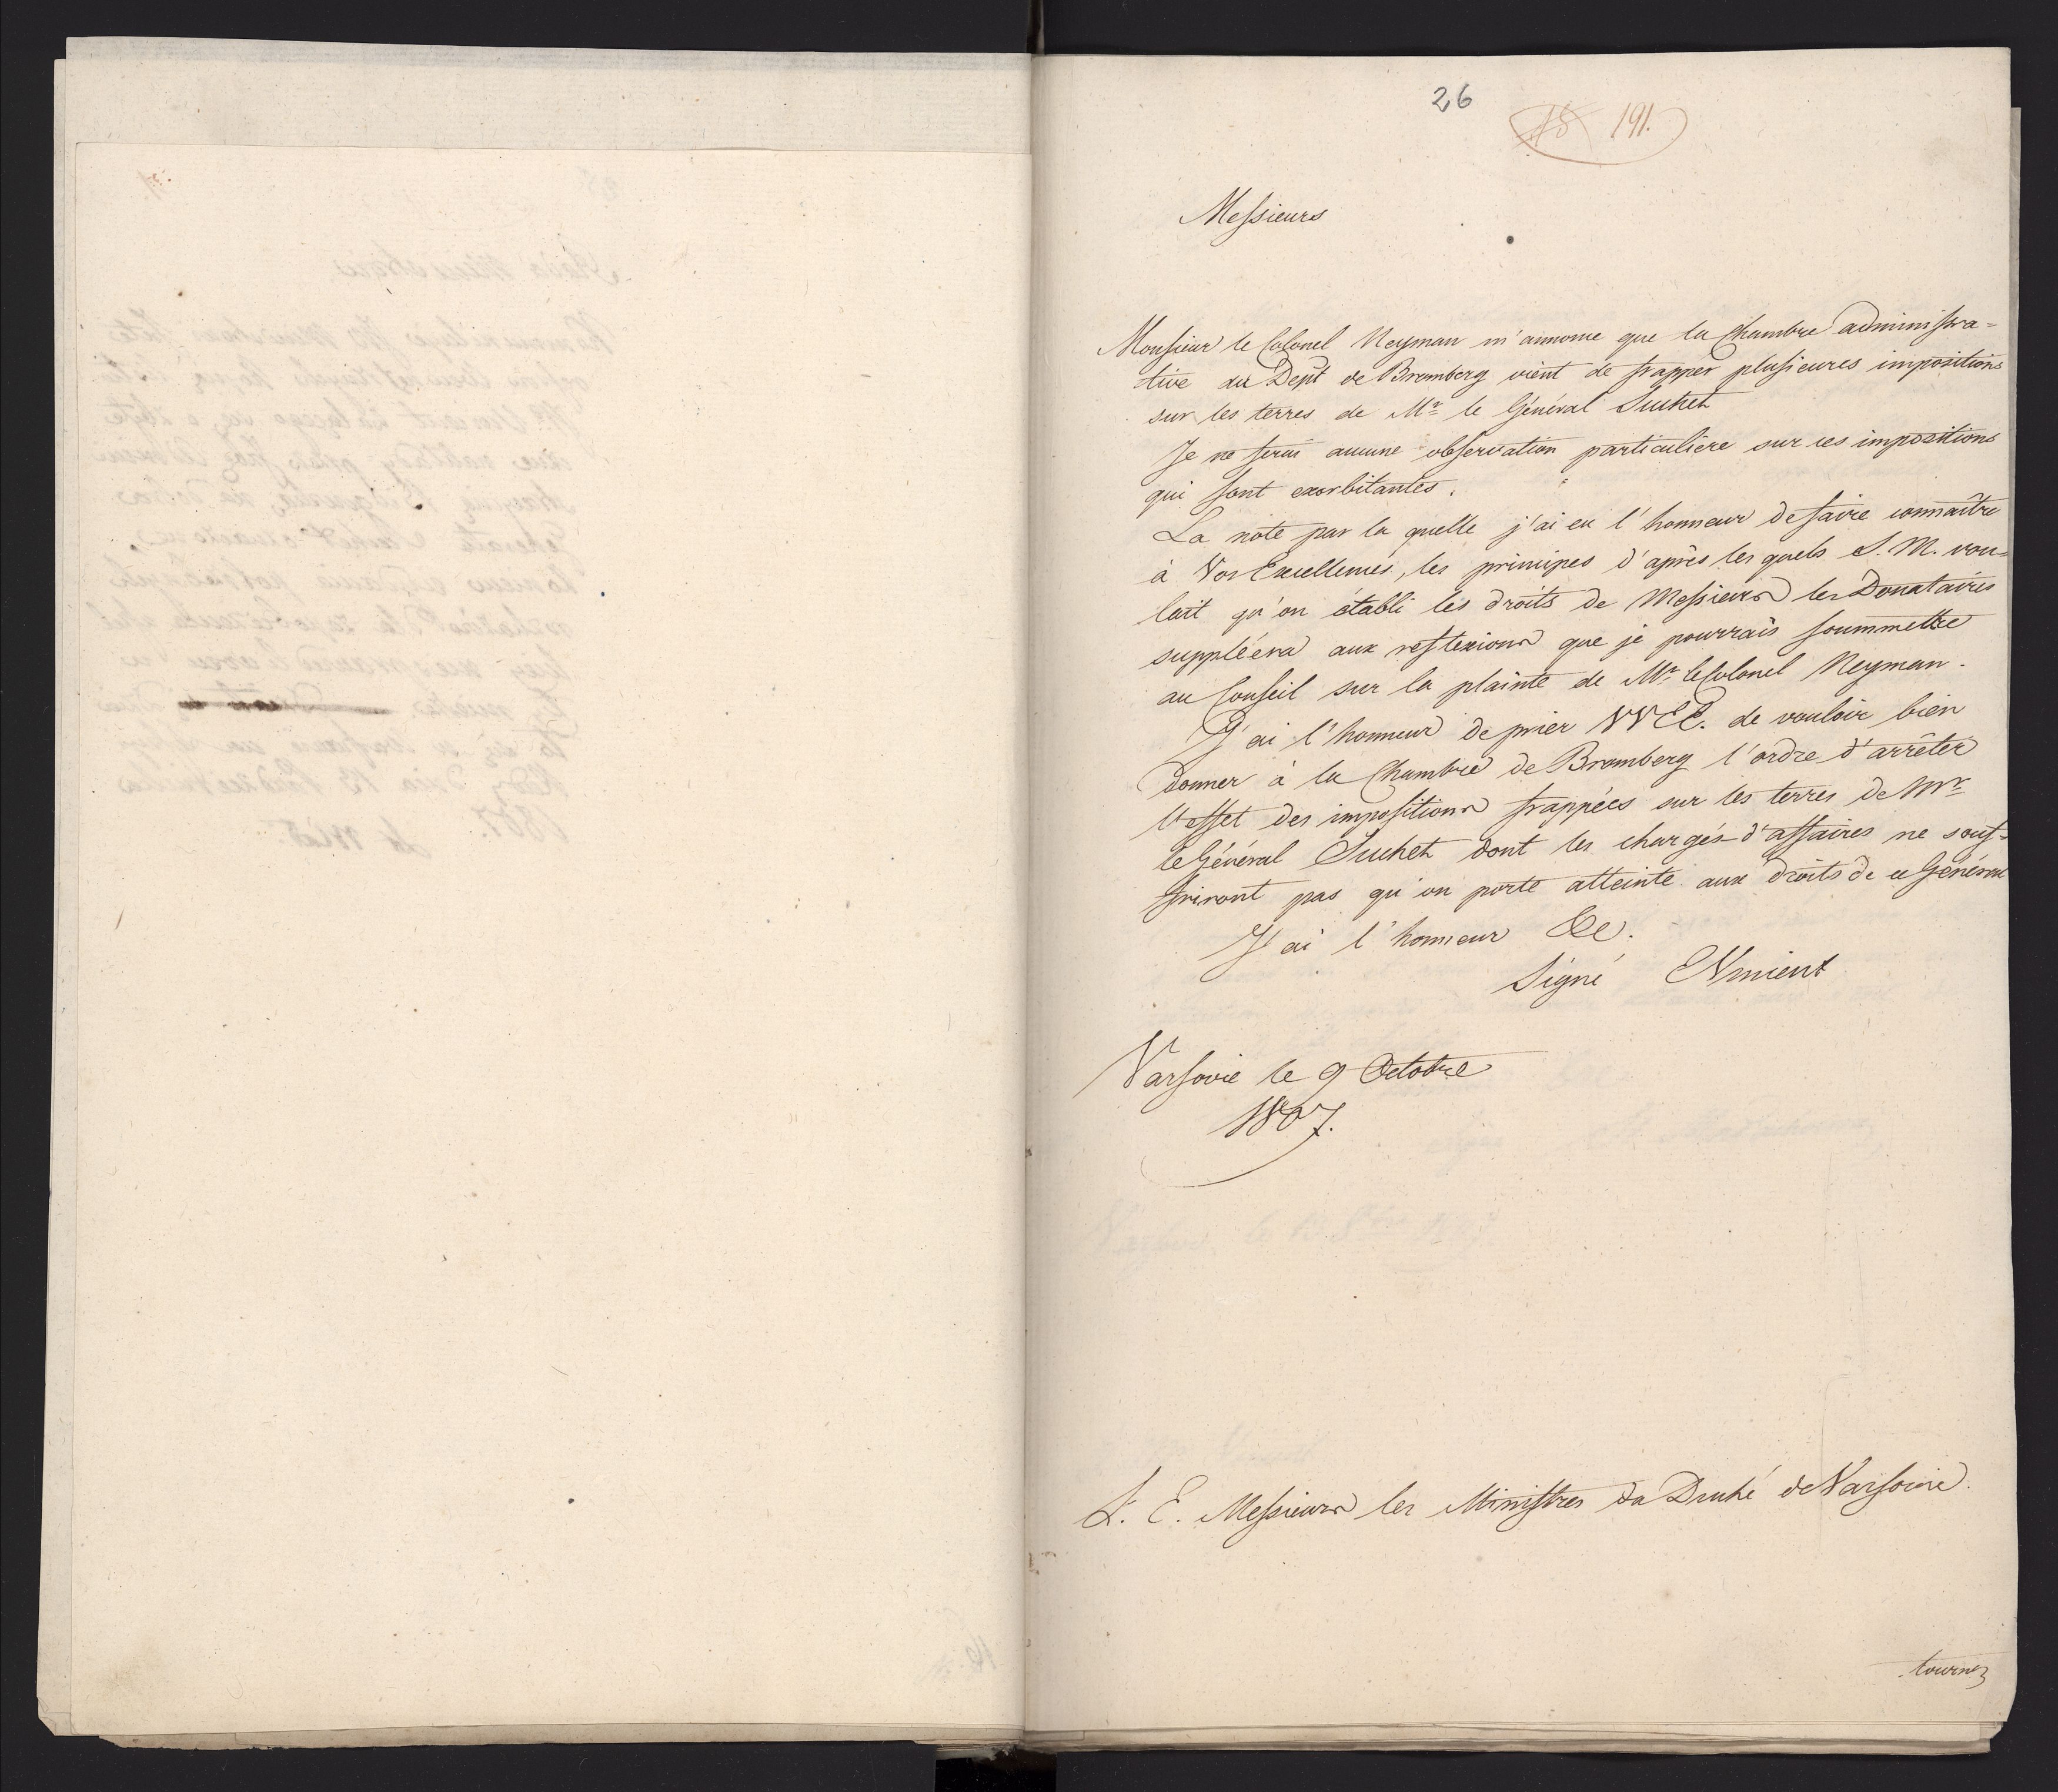 26
191.
Messieurs
Monsieur le Colonel Neyman m'annonce que la Chambre administra=
tive du Dept de Bromberg vient de frapper plusieures impositions
sur les terres de Mr le Général Suchet
Je ne ferai aucune observation particuliere sur ces impositions
qui sont exorbitantes.
La note par la quelle j'ai eu l'honneur de faire connaître
à Vos Excellences, les principes d'après les quels S. M. vou=
lait qu'on établi les droits de Messieurs les Donataires
suppléera aux reflexions que je pourrais soummettre
au Conseil sur la plainte de Mr le Colonel Neyman.
J'ai l'honneur de prier VVEE. de vouloir bien
donner à la Chambre de Bromberg l'ordre d'arrêter
l'effet des impositions frappées sur les terres de Mr
le Général Suchet dont les chargés d'affaires ne souf=
friront pas qu'on porte atteinte aux droits de ce Général
J'ai l'honneur &c.
Signé Vincent
Varsovie le 9 Octobre
1807.
L. E. Messieurs les Ministres du Duché de Varsovie.
tournez